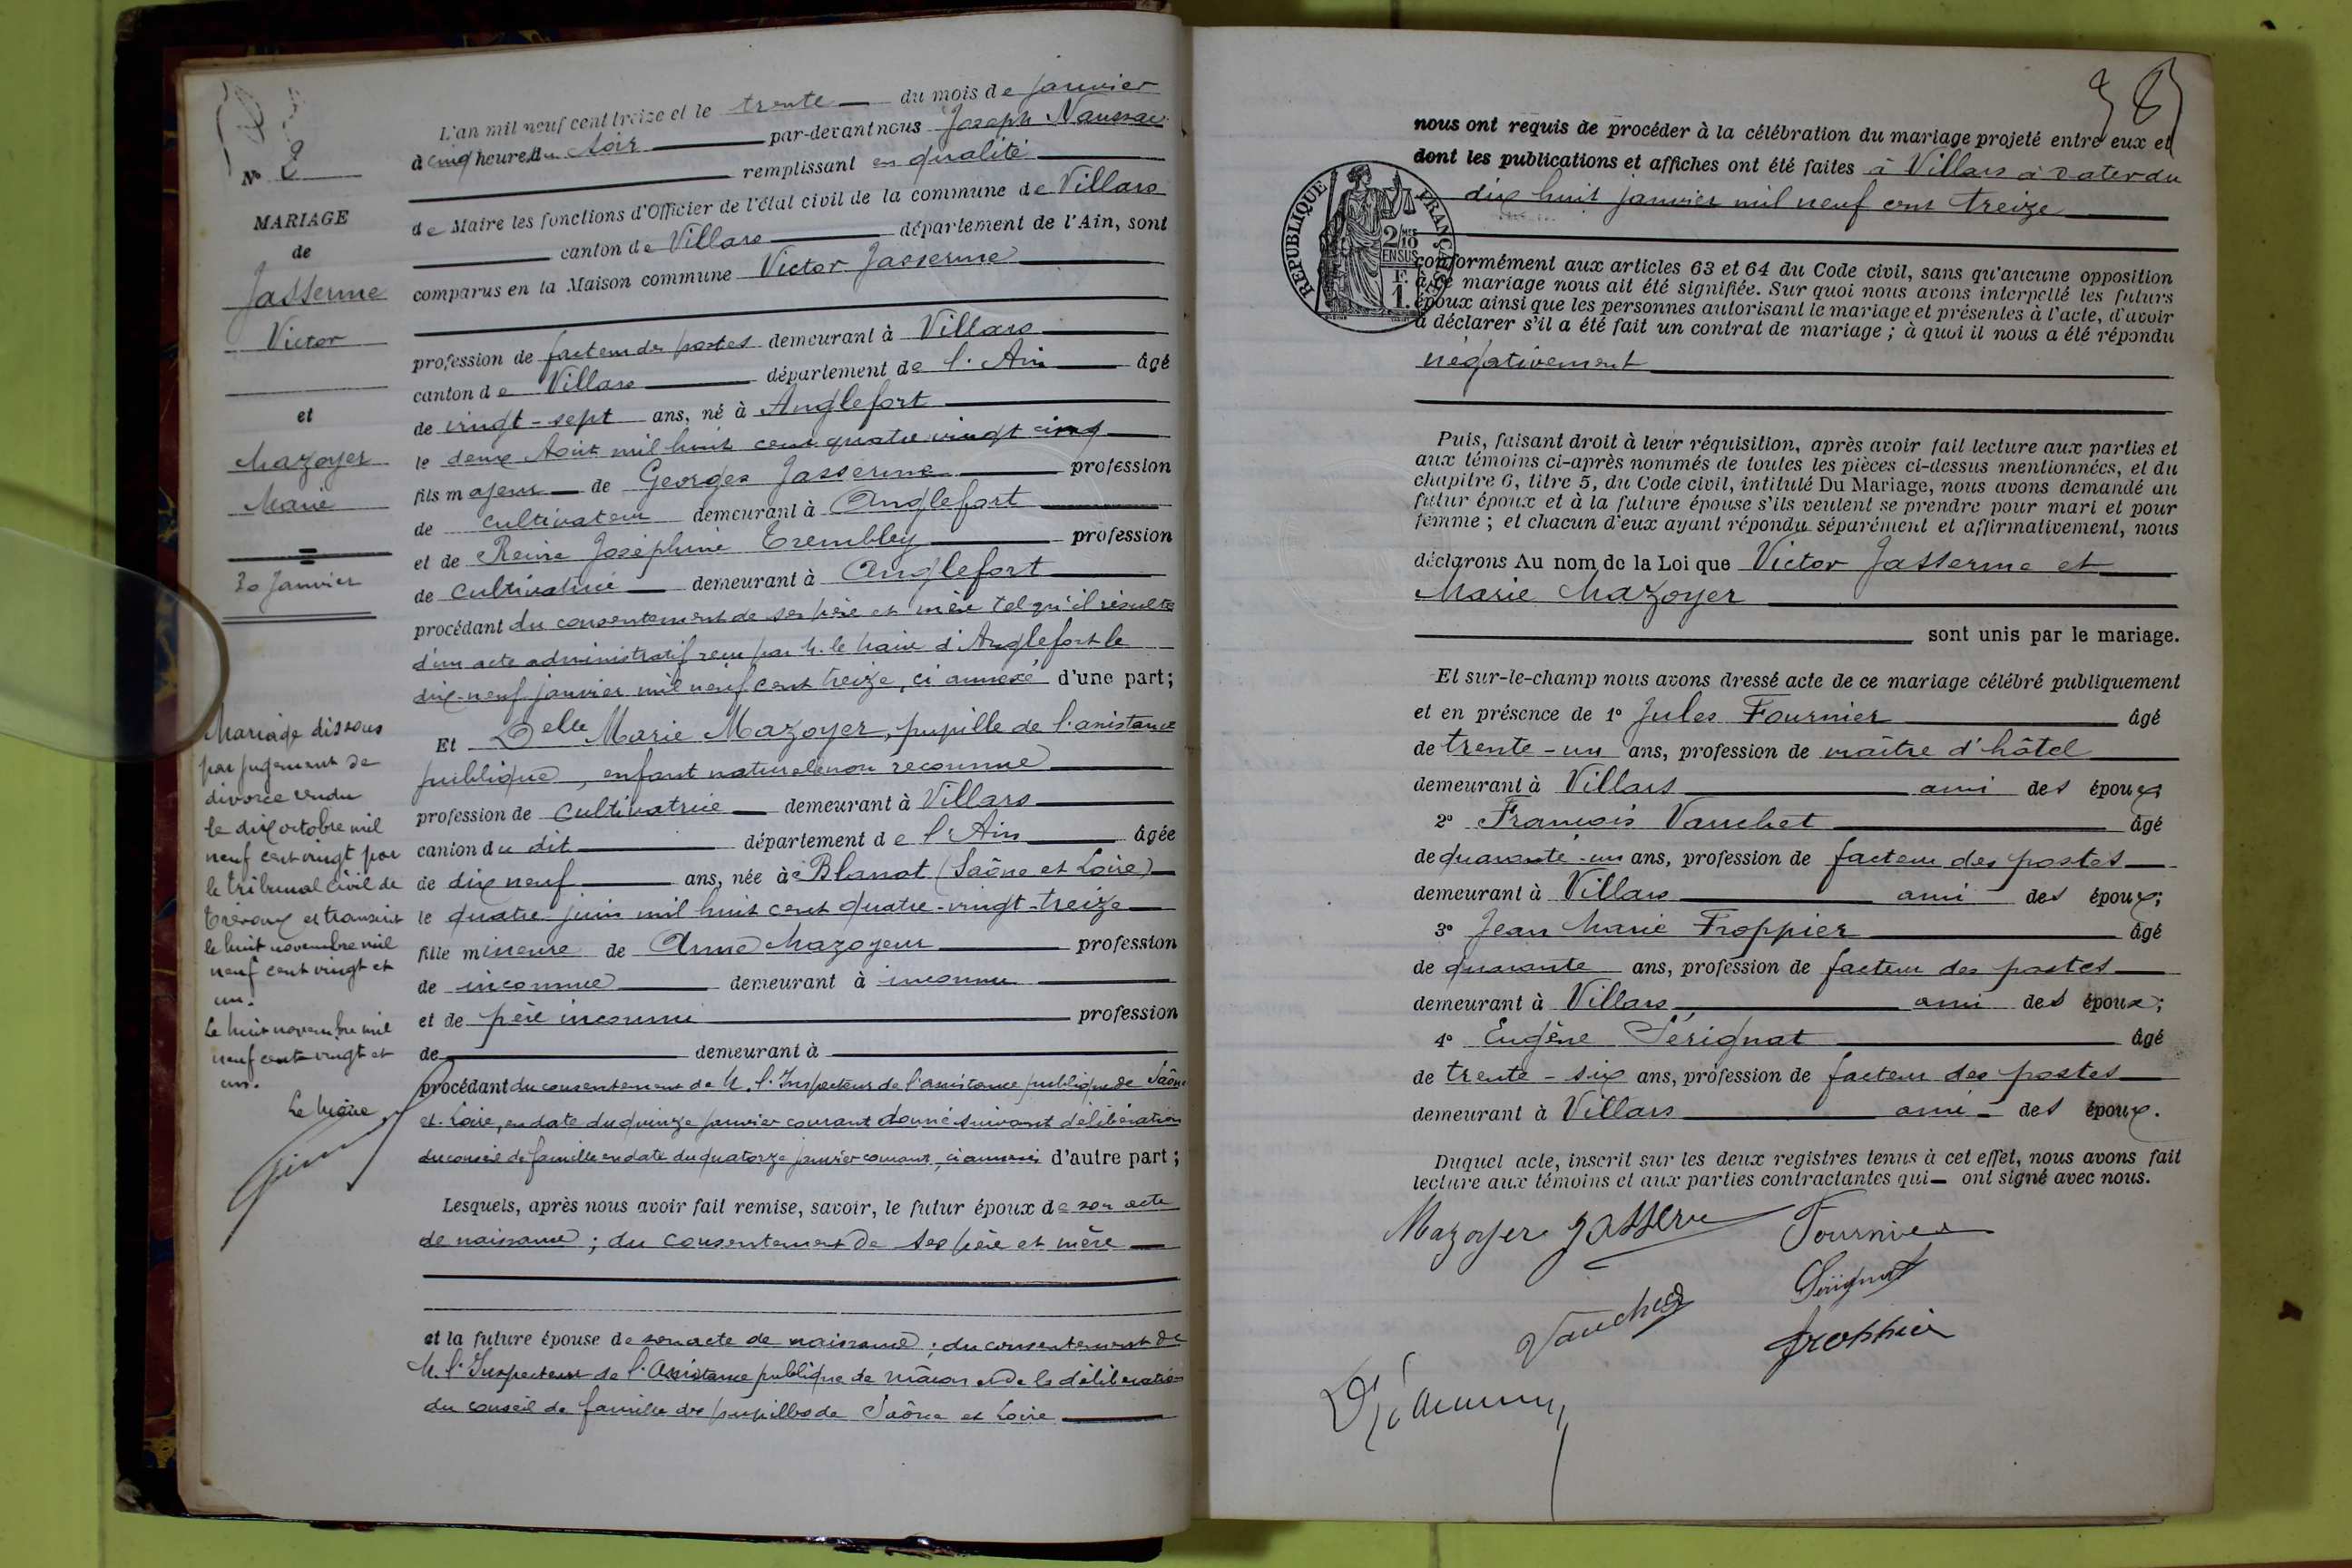 N° 2
MARIAGE
de
Jasserme
Victor
et
Mazoyer
Marie
30 Janvier
Mariage dissous
par jugement de
divorce rendu
le dix octobre mil
neuf cent vingt par
le tribunal civil de
Trévoux et transcrit
le huit novembre mil
neuf cent vingt et
un.
Le huit novembre mil
neuf cent vingt et
un.
Le Maire
L'an mil neuf cent treize et le trente du mois de janvier
à cinq heures du soir par-devant nous Joseph
remplissant en qualité
de Maire les fonctions d'Officier de l'état civil de la commune de Villars
canton de Villars département de l'Ain, sont
comparus en la Maison commune Victor Jasserme
profession de facteur des postes demeurant à Villars
canton de Villars département de l'Ain âgé
de vingt-sept ans, né à Anglefort
le deux Août mil huit cent quatre vingt cinq
fils majeur de Georges Jasserme profession
de cultivateur demeurant à Anglefort
et de Reine Joséphine Trembley profession
de cultivatrice demeurant à Anglefort
procédant du consentement de ses père et mère tel qu'il résulte
d'un acte administratif reçu par M. le Maire d'Anglefort le
dix-neuf janvier mil neuf cent treize, ci annexé d'une part;
Et Delle Marie Mazoyer, pupille de l'assistance
publique, enfant naturel non reconnue
profession de cultivatrice demeurant à Villars
canton du dit département de l'Ain âgée
de dix neuf ans, née à Blanot (Saône et Loire)
le quatre juin mil huit cent quatre-vingt-treize
fille mineure de Anne Mazoyer profession
de inconnue demeurant à inconnu
et de père inconnu profession
de demeurant à
procédant du consentement de M. l'Inspecteur de l'assistance publique de Saône
et Loire, en date du quinze janvier courant donné suivant délibération
du conseil de famille en date du quatorze janvier courant, ci annexé d'autre part;
Lesquels, après nous avoir fait remise, savoir, le futur époux de son acte
de naissance; du consentement de ses père et mère
et la future épouse de son acte de naissance; du consentement de
M. l'Inspecteur de l'Assistance publique de Mâcon et de la délibération
du conseil de famille des pupilles de Saône et Loire
nous ont requis de procéder à la célébration du mariage projeté entre eux et
dont les publications et affiches ont été faites à Villars à dater du
dix huit janvier mil neuf cent treize
RÉPUBLIQUE FRANÇAISE
2/10
EN SUS
F.
1.
conformément aux articles 63 et 64 du Code civil, sans qu'aucune opposition
à ce mariage nous ait été signifiée. Sur quoi nous avons interpellé les futurs
époux ainsi que les personnes autorisant le mariage et présentes à l'acte, d'avoir
à déclarer s'il a été fait un contrat de mariage; à quoi il nous a été répondu
négativement
Puis, faisant droit à leur réquisition, après avoir fait lecture aux parties et
aux témoins ci-après nommés de toutes les pièces ci-dessus mentionnées, et du
chapitre 6, titre 5, du Code civil, intitulé Du Mariage, nous avons demandé au
futur époux et à la future épouse s'ils veulent se prendre pour mari et pour
femme; et chacun d'eux ayant répondu séparément et affirmativement, nous
déclarons Au nom de la Loi que Victor Jasserme et
Marie Mazoyer
sont unis par le mariage.
Et sur-le-champ nous avons dressé acte de ce mariage célébré publiquement
et en présence de 1° Jules Fournier âgé
de trente-un ans, profession de maître d'hôtel
demeurant à Villars ami des époux;
2° François Vauchet âgé
de quarante-un ans, profession de facteur des postes
demeurant à Villars ami des époux;
3° Jean Marie Froppier âgé
de quarante ans, profession de facteur des postes
demeurant à Villars ami des époux;
4° Eugène Sérignat âgé
de trente-six ans, profession de facteur des postes
demeurant à Villars ami des époux.
Duquel acte, inscrit sur les deux registres tenus à cet effet, nous avons fait
lecture aux témoins et aux parties contractantes qui ont signé avec nous.
Mazoyer Jasserme Fournier
Sérignat
Vauchet
Froppier